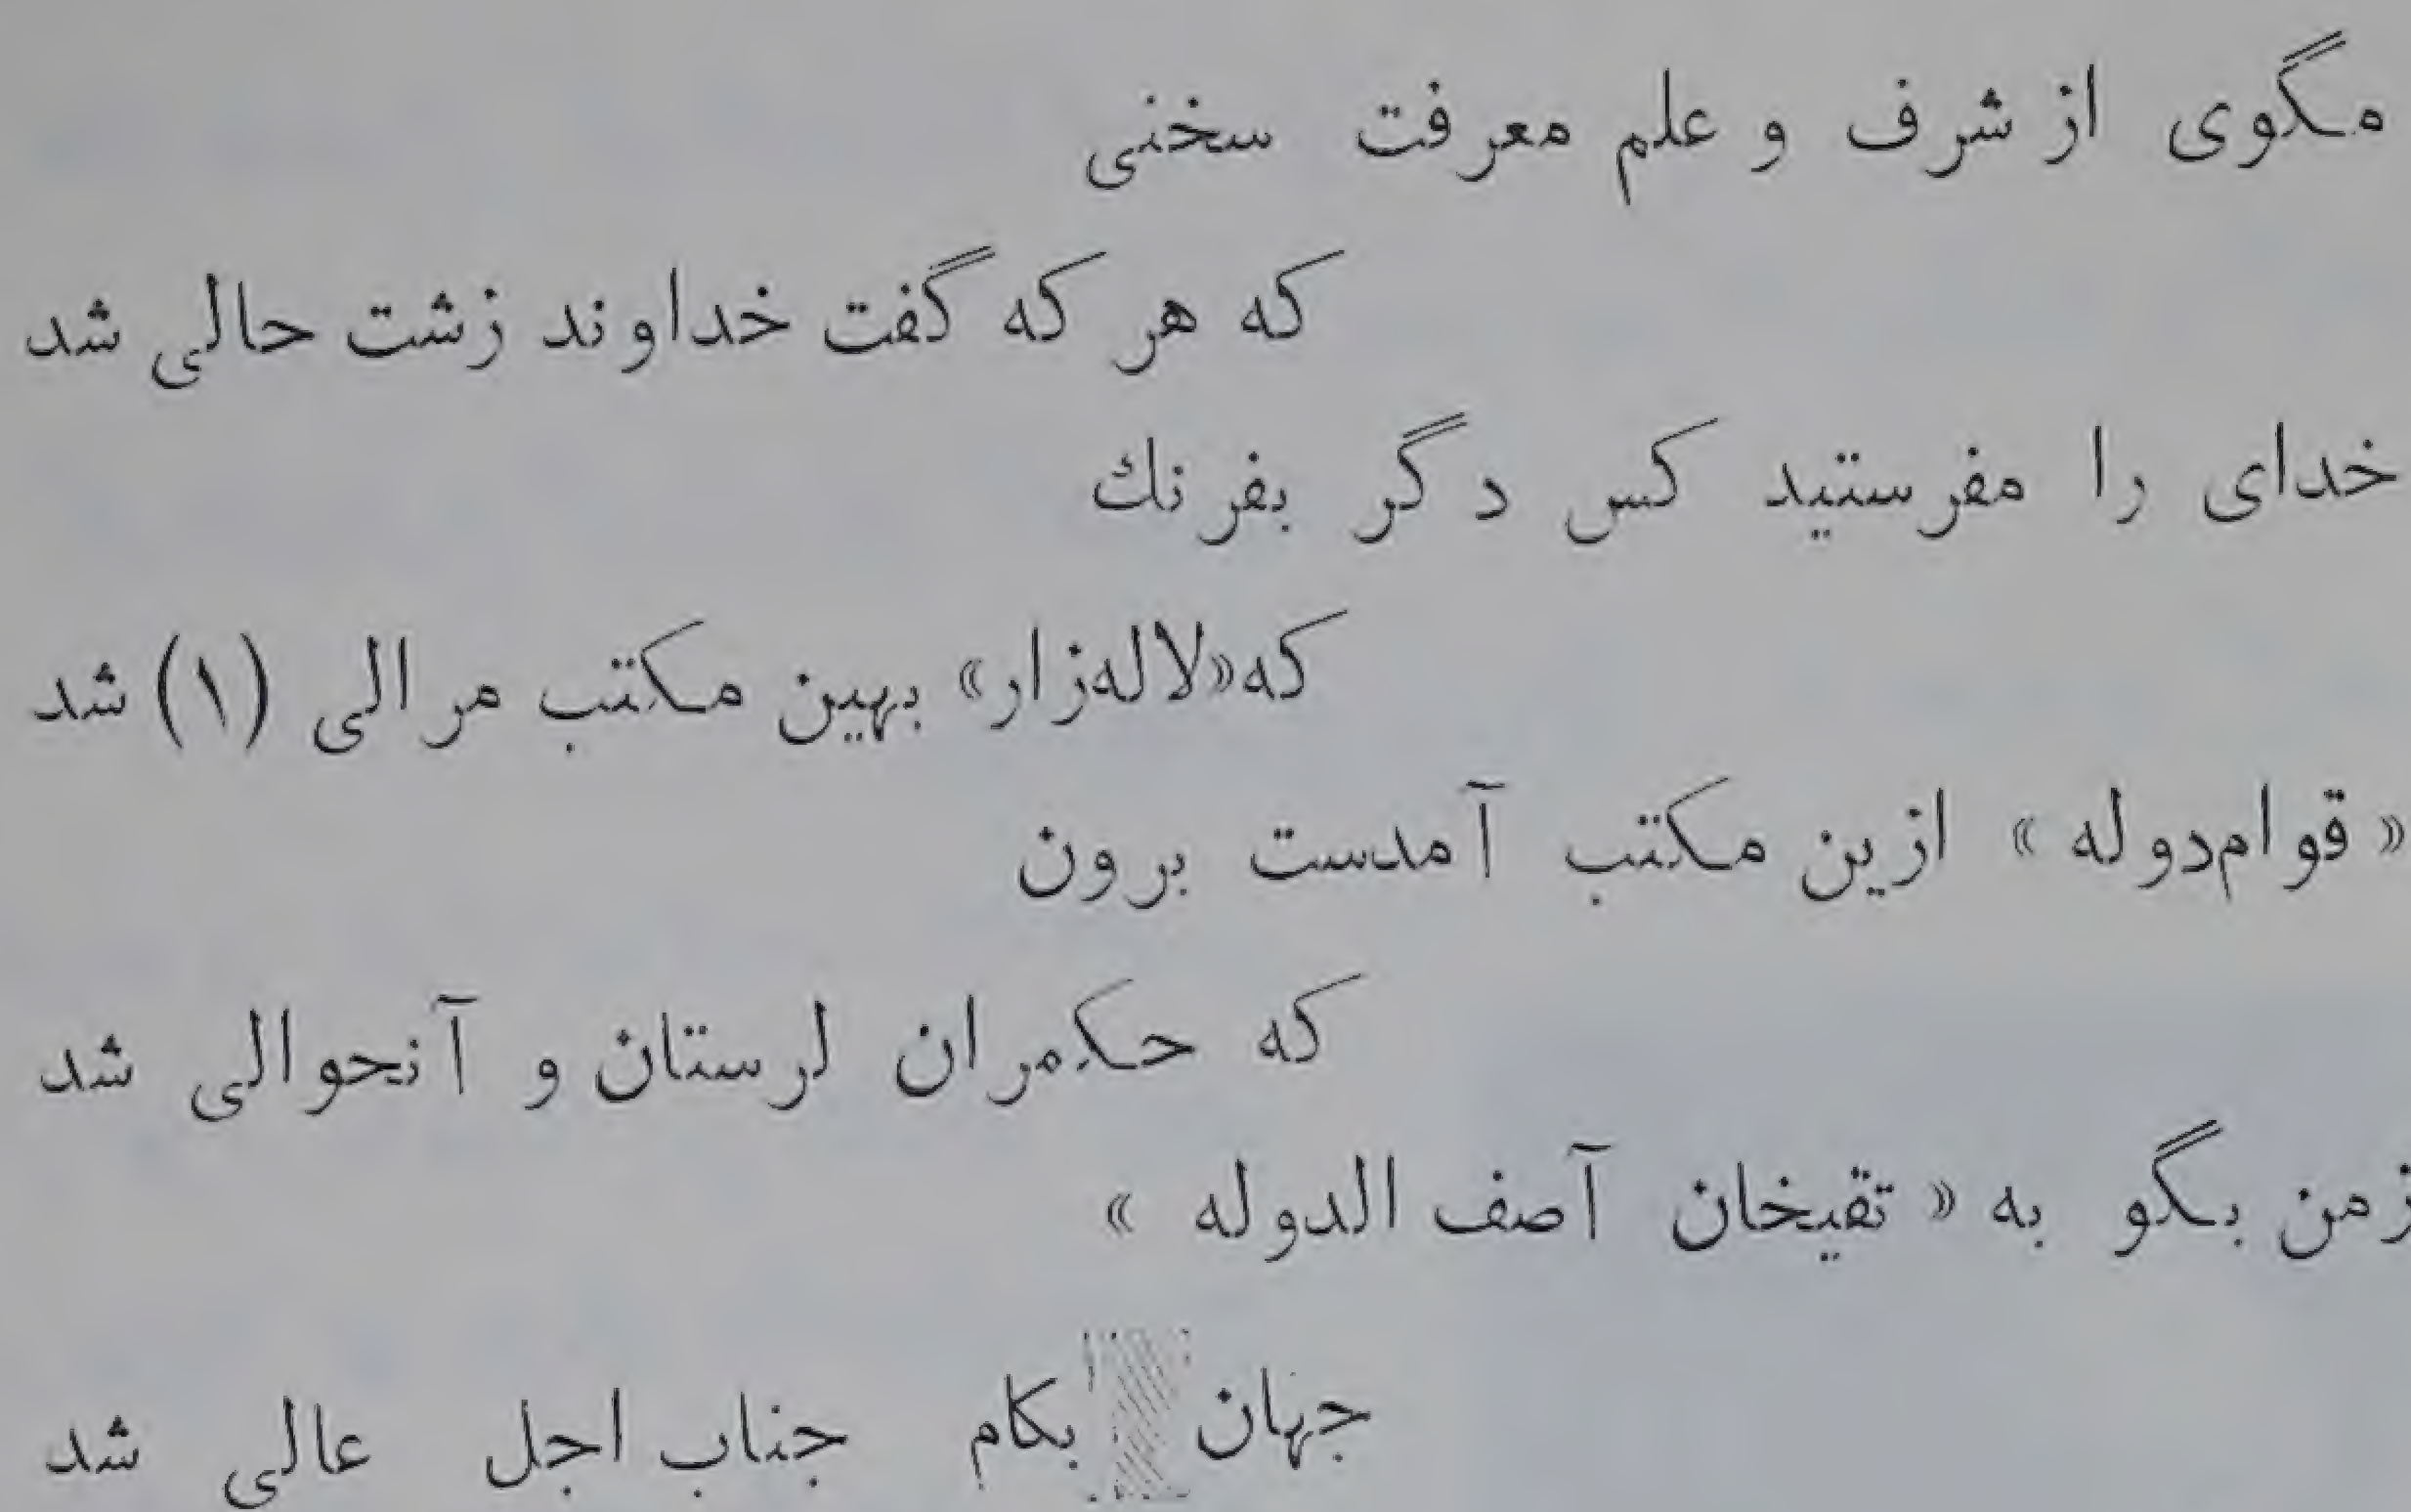 مگوی از شرف و علم معرفت سخنی
که هر که گفت خداوند زشت حالی شد
خدای را مفرستید کس دگر بفرنك
که «لاله‌زار» بهین مکتب مرالی (۱) شد
« قوام‌دوله » ازین مکتب آمدست برون
که حکمران لرستان و آنحوالی شد
زمن بگو به « تقیخان آصف الدوله »
جهان بکام جناب اجل عالی شد